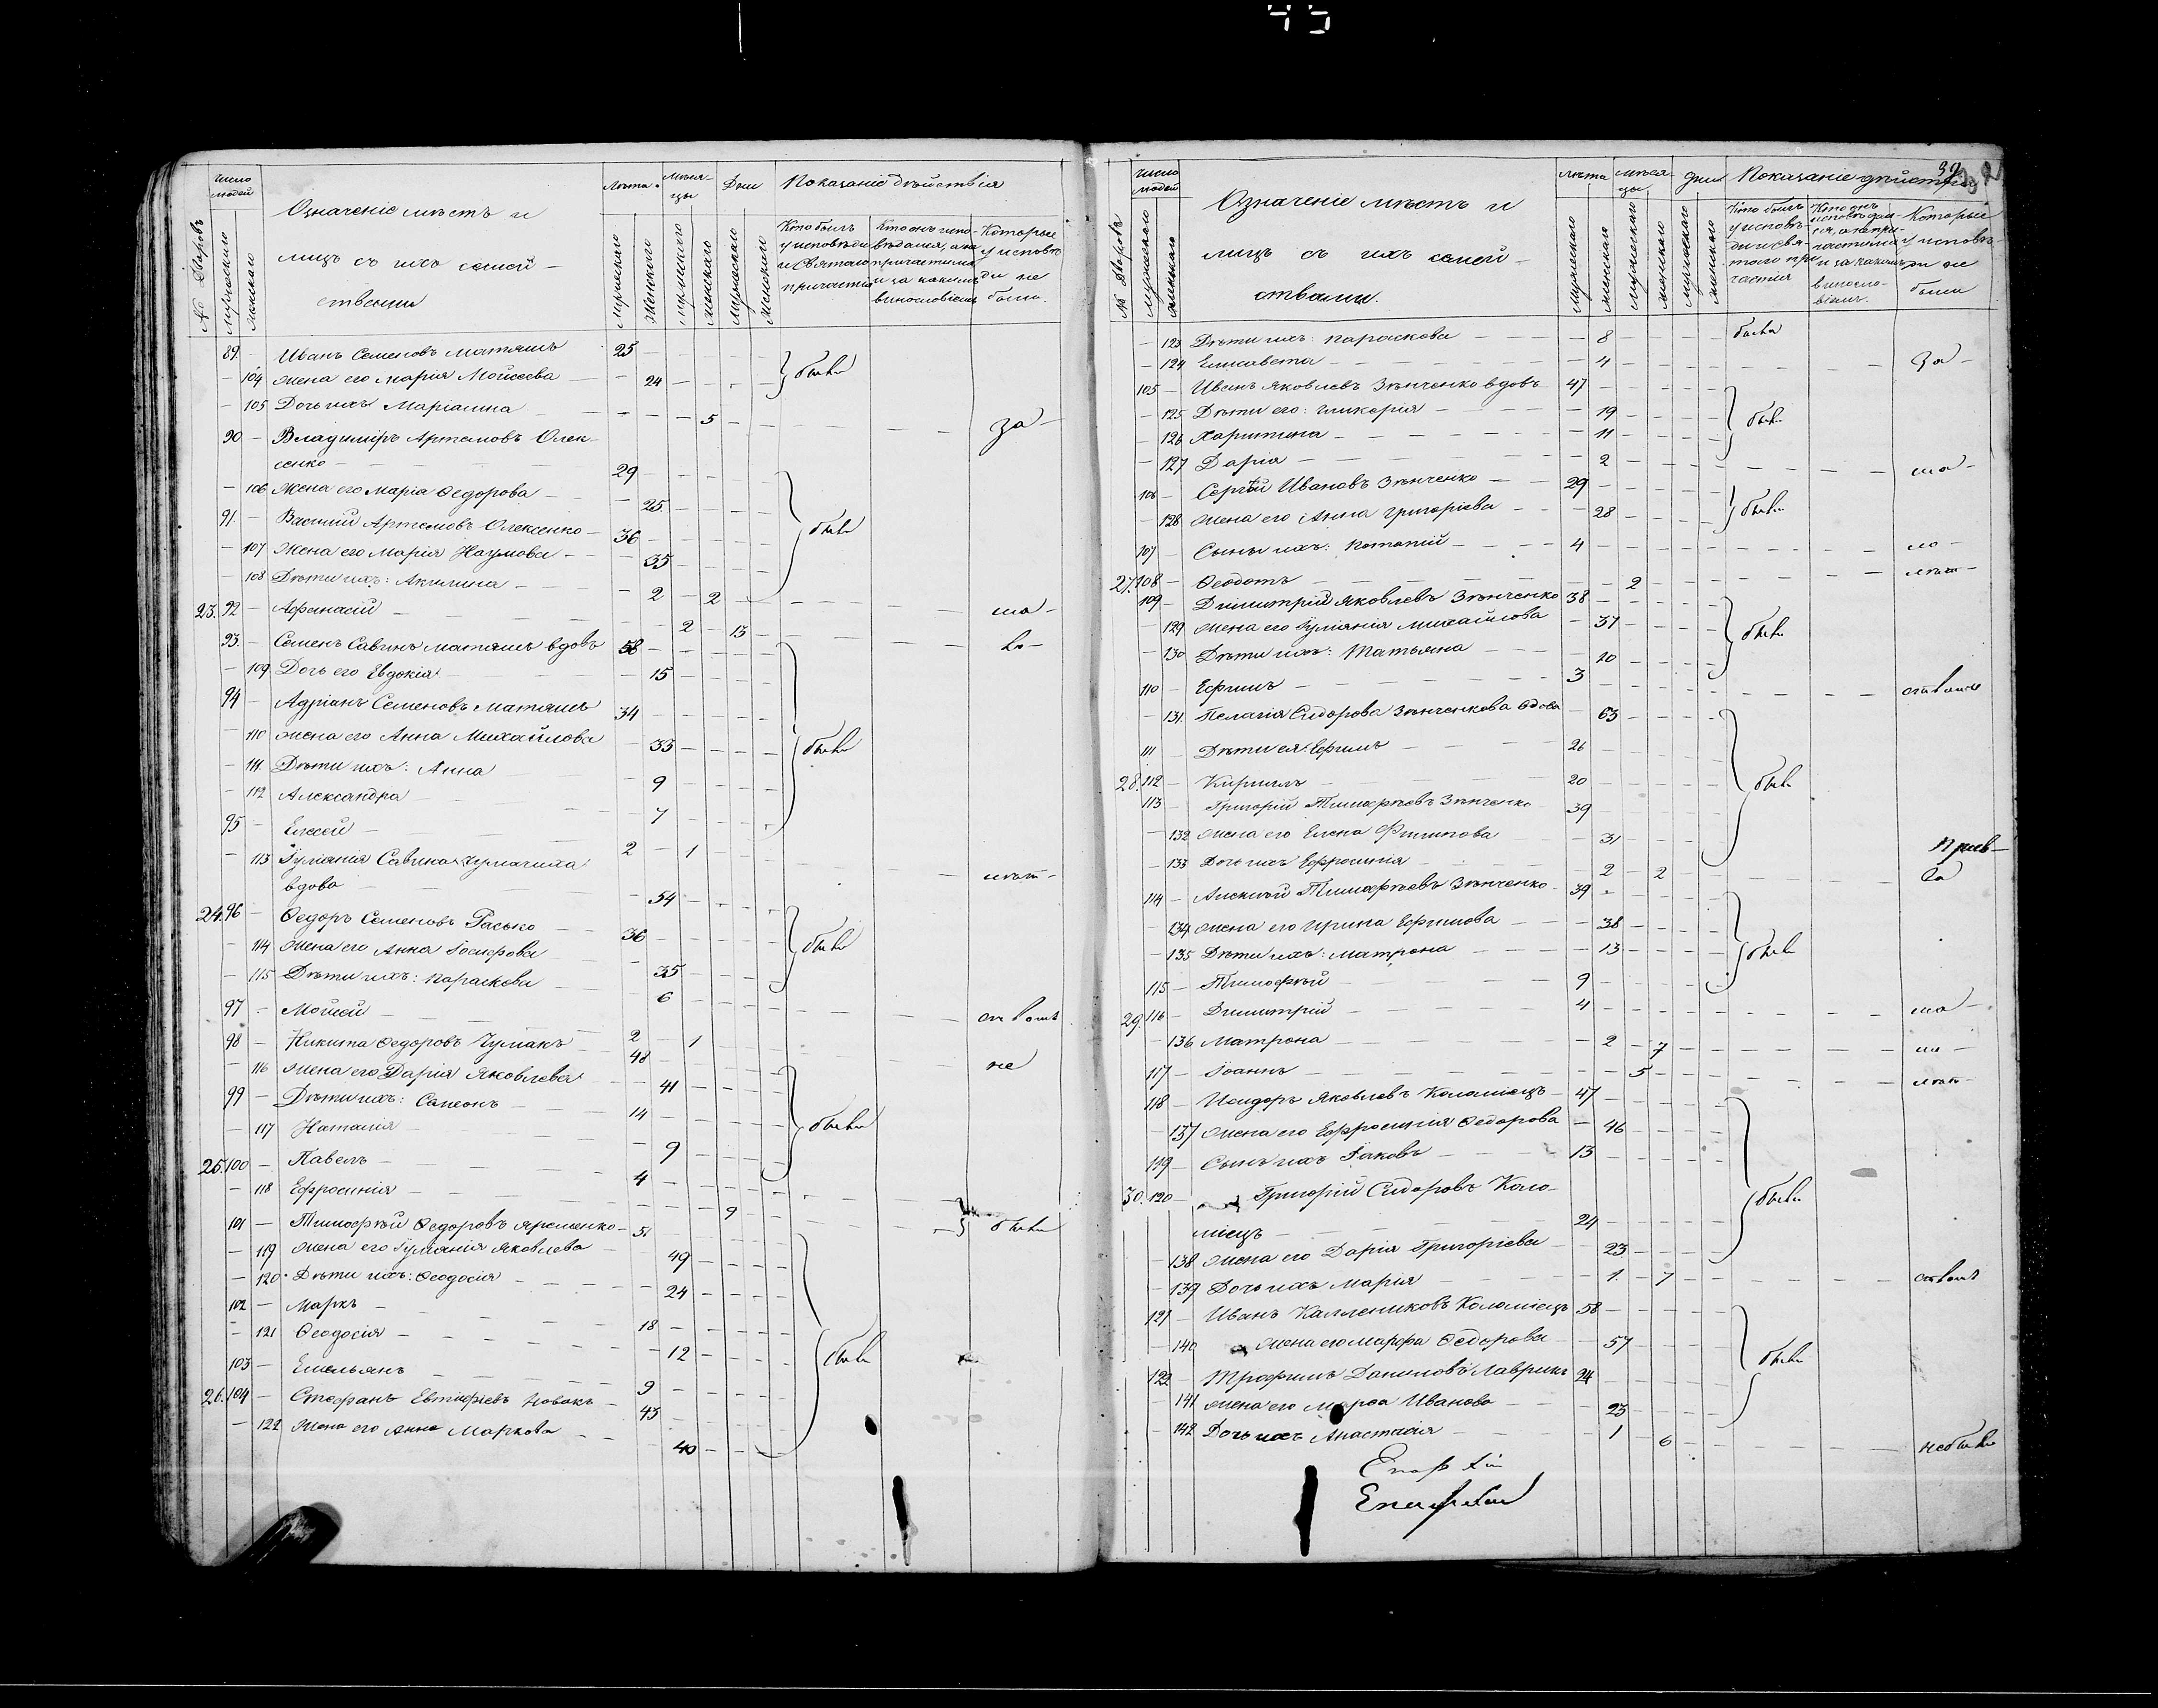 45
Число людей
Лѣта
Мѣся-
цы
Дни
Показаніе дѣйствія
№ Дворовъ
Мужескаго
Женскаго
Означеніе мѣстъ и
лицъ съ ихъ семей-
ствами
Мужескаго
Женскаго
Мужескаго
Женскаго
Мужескаго
Женскаго
Кто былъ у исповѣди и Святаго причастія
Кто онъ испо-вѣдался, а не причастился и за какимъ винословіемъ
Которые у исповѣ-ди не были.
89. – Иванъ Семеновъ Матяшъ 25
– 104 Жена его Марія Моисеева 24 были
– 105 Дочь ихъ Маріанна 5 за
90 – Владиміръ Артемовъ Олек-
сенко 29
– 106 Жена его Марія Ѳедорова 25
91. – Василій Артемовъ Олексенко 36 были
– 107 Жена его Марія Наумова 35
– 108 Дѣти ихъ: Акилина 2 2 ма-
23. 92 – Афанасій 2 13 ло-
93. – Семенъ Савинъ Матяшъ вдовъ 58
– 109 Дочь его Евдокія 15
94 – Адріанъ Семеновъ Матяшъ 34
– 110 Жена его Анна Михайлова 33 были
– 111. Дѣти ихъ: Анна 9
– 112 Александра 7
95 – Елисей 2 1 лѣт-
– 113 Іуліанія Савина Чумачиха
вдова 54
24. 96 – Ѳедоръ Семеновъ Расько 36
– 114 Жена его Анна Іосифова 35 были
– 115 Дѣти ихъ: Параскова 6
97 – Моисей 2 1
98 – Никита Ѳедоровъ Чумакъ 48 не
– 116 Жена его Дарія Яковлева 41
99 – Дѣти ихъ: Самсонъ 14 были
– 117 Наталія 9
25. 100 – Павелъ 4
– 118 Ефросинія 9 были
101 – Тимофѣй Ѳедоровъ Яременко 51
– 119 Жена его Іуліанія Яковлева 49
– 120. Дѣти ихъ: Ѳеодосія 24
102 – Маркъ 18
– 121 Ѳеодосія 12 были
103 – Емельянъ 9
26. 104 – Стефанъ Евтифіевъ Новакъ 43
– 122 Жена его Анна Маркова 40
39
Число людей
Лѣта
Мѣся-
цы
Дни
Показаніе дѣйствія
№ Дворовъ
Мужескаго
Женскаго
Означеніе мѣстъ и
лицъ съ ихъ семей-
ствами.
Мужескаго
Женскаго
Мужескаго
Женскаго
Мужескаго
Женскаго
Кто былъ у исповѣ-ди и Свя-таго при-частія
Кто онъ исповѣдал-ся, а не при-частился и за какимъ виносло-віемъ.
Которые у исповѣ-ди не были
– 123 Дѣти ихъ: Параскова 8 были
– 124 Елисавета 4 За-
105 – Иванъ Яковлевъ Зѣнченко вдовъ 47
– 125 Дѣти его: Гликерія 19 были
– 126 Харитина 11
– 127 Дарія 2 ма-
106 – Сергѣй Ивановъ Зѣнченко 29
– 128 Жена его Анна Григоріева 28 были
107 – Сыны ихъ: Потапій 4 ло-
27. 108 – Ѳеодотъ 2 лѣт-
109 – Димитрій Яковлевъ Зѣнченко 38
– 129 Жена его Іуліанія Михайлова 37 были
– 130 Дѣти ихъ: Татьяна 10
110 – Ефимъ 3
– 131. Пелагія Сидорова Зѣнченкова вдова 63
111 – Дѣти ея: Ефимъ 26
28. 112 – Кириллъ 20 были
113 – Григорій Тимофѣевъ Зѣнченко 39
– 132 Жена его Елена Филипова 31
– 133 Дочь ихъ Ефросинія 2 2
114 – Алексѣй Тимофѣевъ Зѣнченко 39
– 134 Жена его Ирина Ефимова 38
– 135 Дѣти ихъ: Матрона 13 были
115 – Тимофѣй 9
29. 116 – Димитрій 4 ма-
– 136 Матрона 2 7 ло-
117 – Іоаннъ 5 лѣт-
118 – Исидоръ Яковлевъ Коломіецъ 47
– 137 Жена его Ефросинія Ѳедорова 46
119 – Сынъ ихъ Іаковъ 13
30. 120 – Григорій Сидоровъ Коло- были
міецъ 24
– 138 Жена его Дарія Григоріева 23
– 139 Дочь ихъ Марія 1 7
121 – Иванъ Каллениковъ Коломіецъ 58
– 140 Жена его Марфа Ѳедорова 57 были
122 – Трофимъ Даниловъ Лаврикъ 24
– 141 Жена его Марфа Иванова 23
– 142 Дочь ихъ Анастасія 1 6 не были